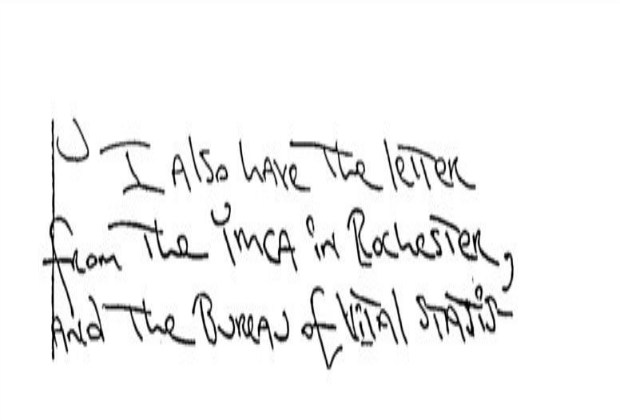 I Also have The letter
from The YMCA in Rochester,
And The Bureau of Vital Statis-